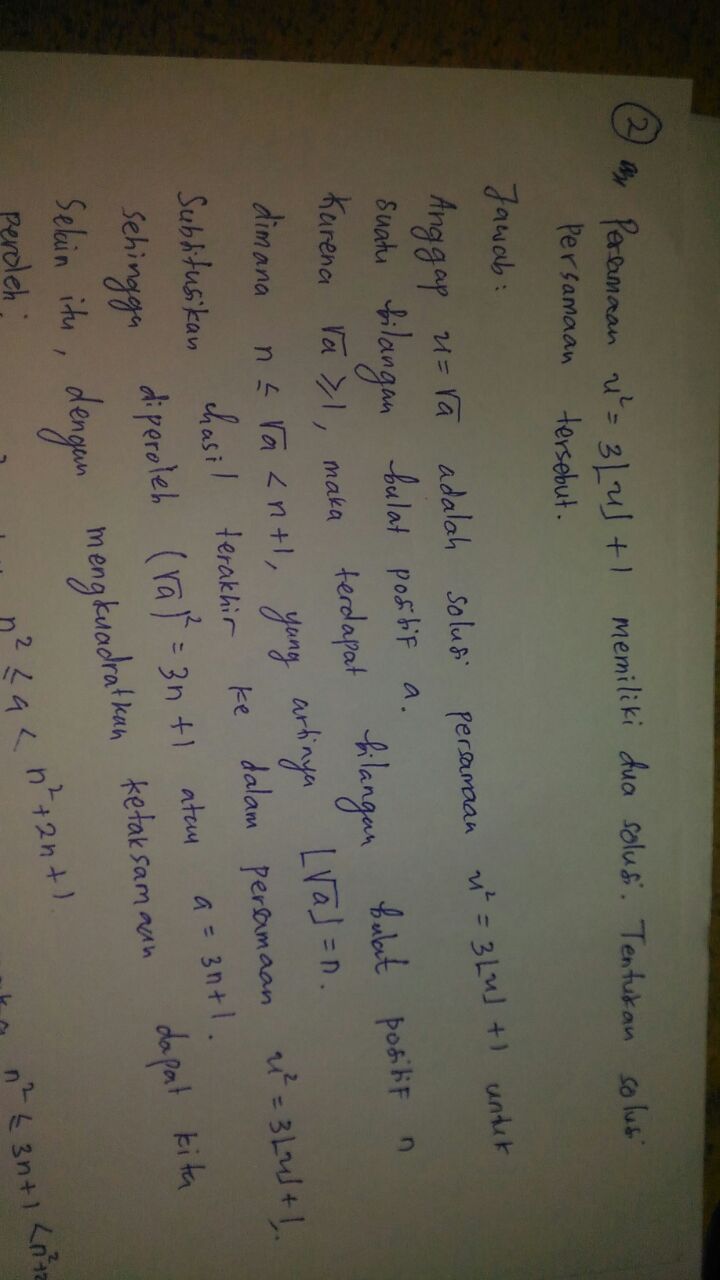 2 Persamaan u² = 3⌊u⌋ + 1 memiliki dua solusi. Tentukan solusi
persamaan tersebut.
Jawab:
Anggap u = √a adalah solusi persamaan u² = 3⌊u⌋ + 1 untuk
suatu bilangan bulat positif a.
Karena √a ⩾ 1, maka terdapat bilangan bulat positif n
dimana n ≤ √a < n+1, yang artinya ⌊√a⌋ = n.
Subtitusikan hasil terakhir ke dalam persamaan u² = 3⌊u⌋ + 1,
sehingga diperoleh (√a)² = 3n + 1 atau a = 3n + 1.
Selain itu, dengan mengkuadratkan ketaksamaan dapat kita
peroleh: n² ≤ a < n² + 2n + 1 n² ≤ 3n + 1 < n² + 2